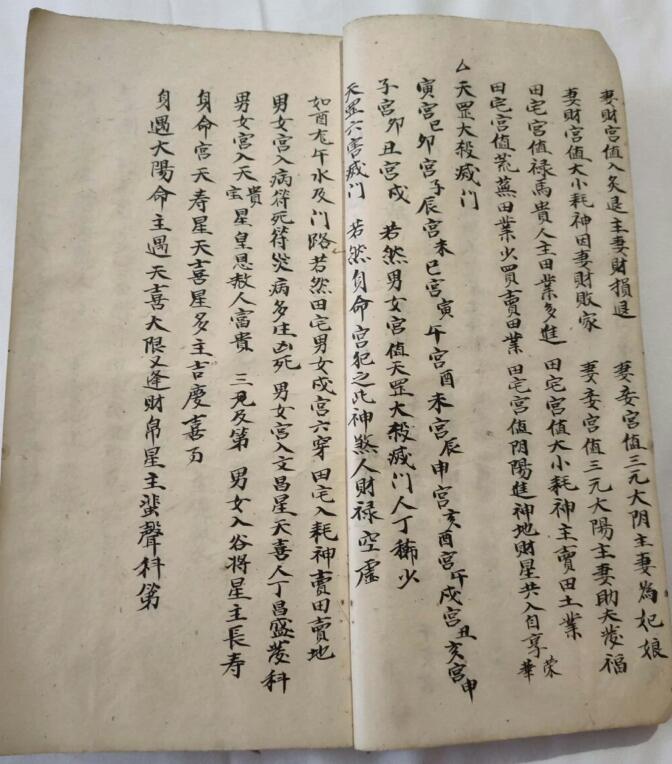 妻财宫值入灸退主妻財損退　妻妾宫值三元大阴主妻為妃娘
妻財宫值大小耗神因妻財敗家　妻妾宫值三元大陽主妻助夫发福
田宅宫值禄馬貴人主田業多進　田宅宫值大小耗神主賣田土業
田宅宫值荒蕪田業少買賣田業　田宅宫值阴陽進神地財星共入自享荣華
厶天罡大殺滅门
寅宫巳卯宫子辰宫未巳宫寅午宫酉未宫辰申宫亥酉宫午戍宫丑亥宫申
子宫卯丑宫戍　若然男女宫值天罡大殺滅门人丁稀少
天罡六害滅门　若然身命宫犯之此神煞人財禄空虚
如酉龙午水及门路若然田宅男女戍宫六穿田宅入耗神賣田賣地
男女宫入病符死符災病多注凶死　男女宫入文昌星天喜人丁昌盛发科
男女宫入天貴宝星皇恩赦人富貴　三元及第　男女入谷将星主長寿
身命宫天寿星天喜星多主吉慶喜万
身遇大陽命主遇天喜大限又逢財帛星主蜚聲科第